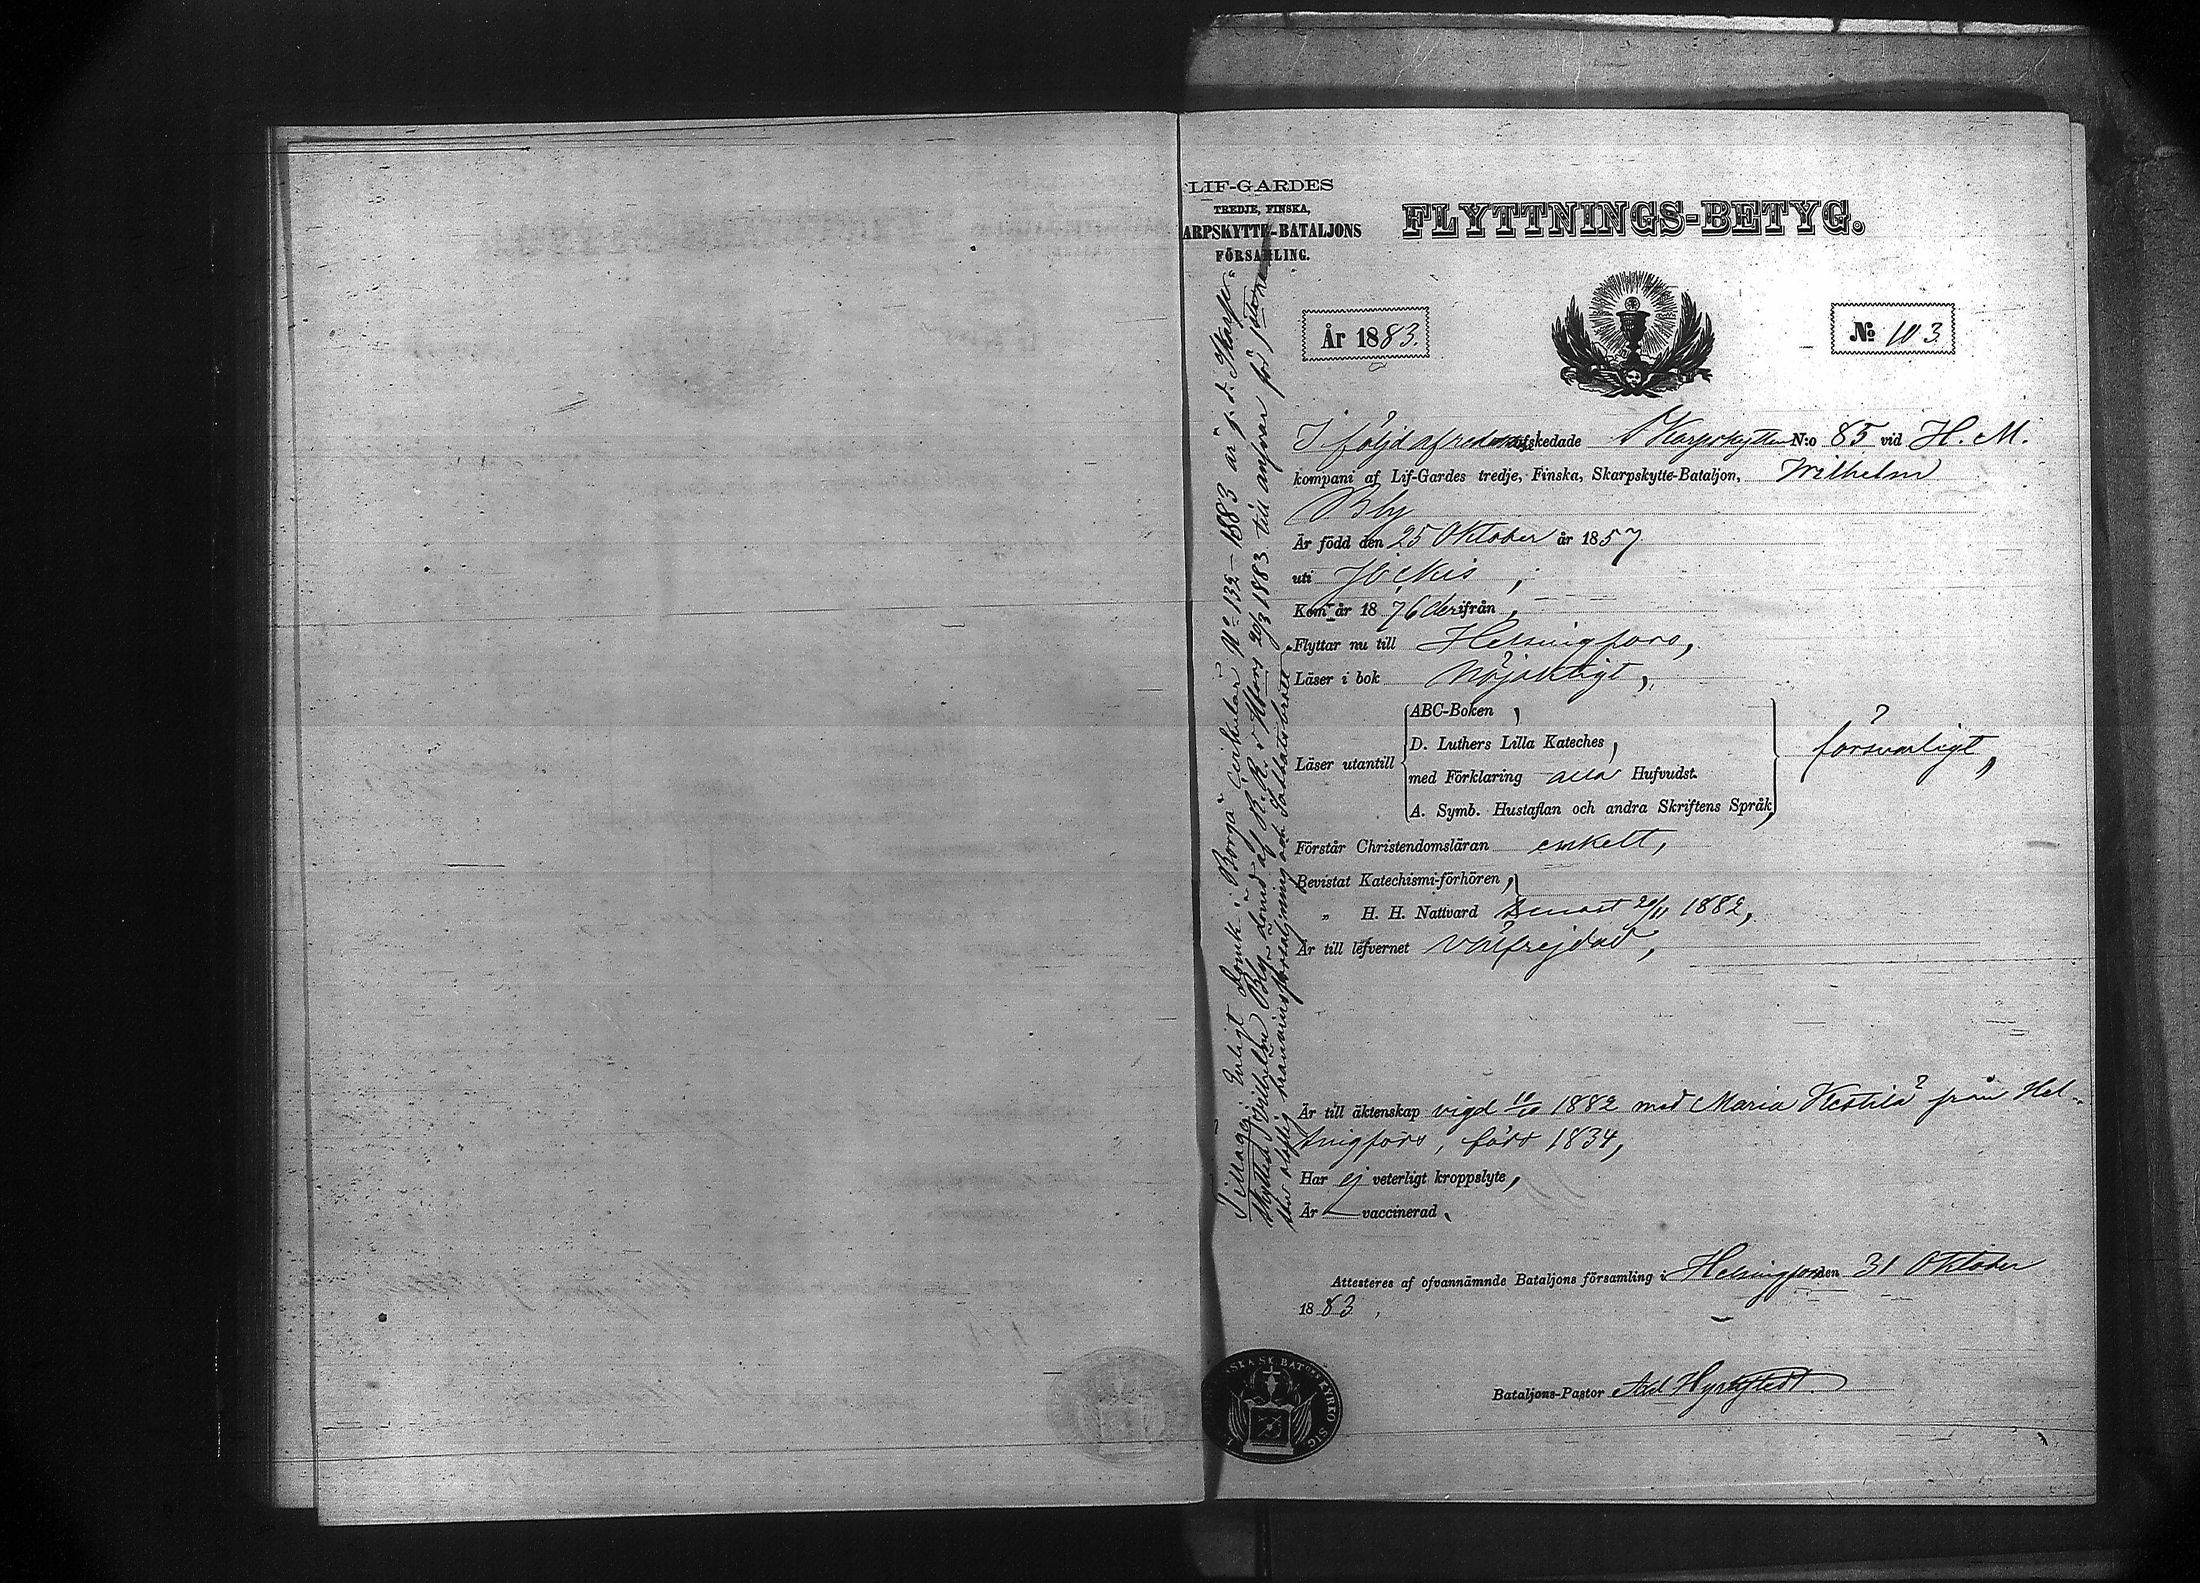 LIF-GARDES
TREDJE, FINSKA,
ARPSKYTTE-BATALJONS
FÖRSAMLING.
FLYTTNINGS-BETYG.
År 1883.
No 103
I följd af afskedade Skarpskytten N:o 85 vid H. M.
kompani af Lif-Gardes tredje, Finska, Skarpskytte-Bataljon, Wilhelm
Bly
Är född den 25 Oktober år 1857
uti Jockis,
Kom år 1876 derifrån,
Flyttar nu till Helsingfors,
Läser i bok Nöjaktigt,
Läser utantill
ABC-Boken,
D. Luthers Lilla Kateches,
med Förklaring alla Hufvudst.
A. Symb. Hustaflan och andra Skriftens Språk,
försvarligt,
Förstår Christendomsläran enkelt,
Bevistat Katechismi-förhören,
„ H. H. Nattvard senast 20/11 1882,
Är till lefvernet välfrejdad,
Är till äktenskap vigd 10/10 1882 med Maria från Hel-
singfors, född 1834,
Har ej veterligt kroppslyte,
Är vaccinerad.
Attesteras af ofvannämnde Bataljons församling i Helsingfors den 31 Oktober
1883.
Bataljons-Pastor
Tillägg: Enligt Domk. i Borgå Cirkulär No 132-1883 är f. d. Skarps-
skytten Wilhelm Bly dömd af K. R. i H:fors 20/3 1883 till ansvar för
olaflig bränvinsförsäljning och Sabbatsbrott.
SKA SK. BAT:S KYRKO SIG.